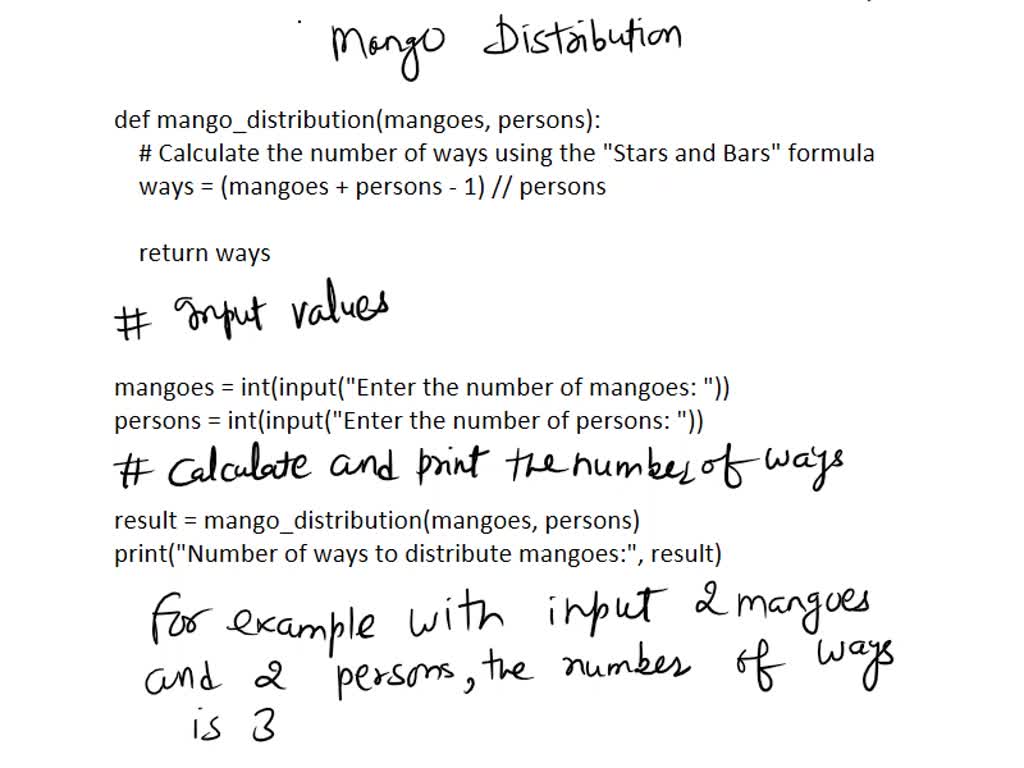 Mango Distribution
def mango_distribution(mangoes, persons):
# Calculate the number of ways using the "Stars and Bars" formula
ways = (mangoes + persons - 1) // persons
return ways
# Input values
mangoes = int(input("Enter the number of mangoes: "))
persons = int(input("Enter the number of persons: "))
# Calculate and print the number of ways
result = mango_distribution(mangoes, persons)
print("Number of ways to distribute mangoes:", result)
For example with input 2 mangoes
and 2 persons, the number of ways
is 3